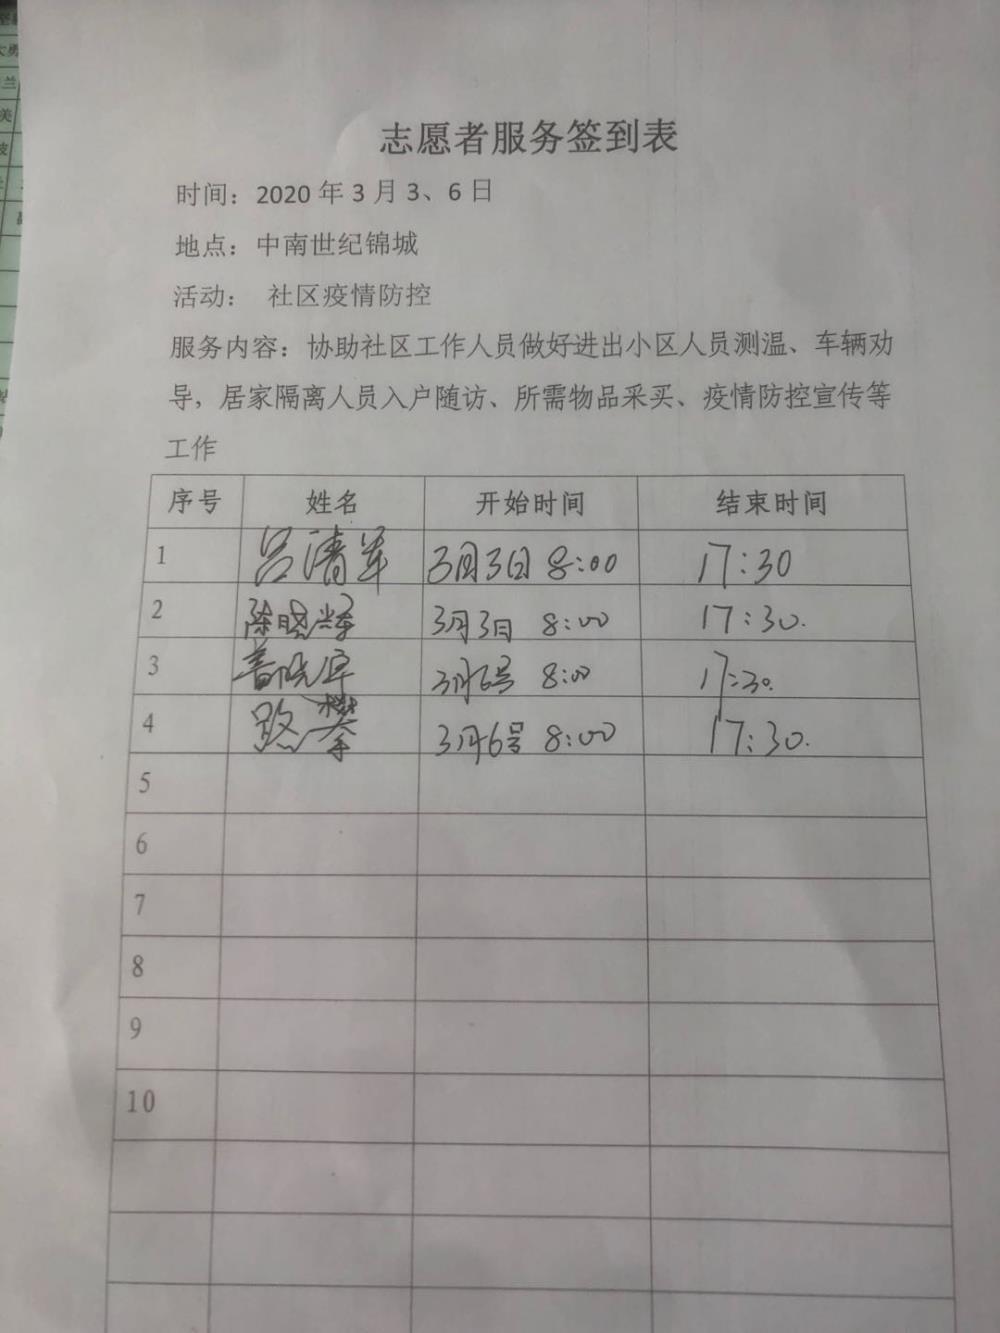 志愿者服务签到表
时间：2020 年 3 月 3、6 日
地点：中南世纪锦城
活动： 社区疫情防控
服务内容：协助社区工作人员做好进出小区人员测温、车辆劝
导，居家隔离人员入户随访、所需物品采买、疫情防控宣传等
工作
序号 姓名 开始时间 结束时间
1 吕清军 3月3日 8:00 17:30
2 陈晓 3月3日 8:00 17:30.
3 3月6号 8:00 17:30.
4 路攀 3月6号 8:00 17:30.
5
6
7
8
9
10
美